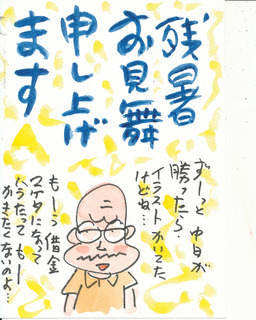 残暑
お見舞
申し上げ
ます
ずーっと 中日が
勝ったら
イラストかいてた
けどね…
もーう 借金
マケタになって
ハラたって もー
かきたくないのよ…